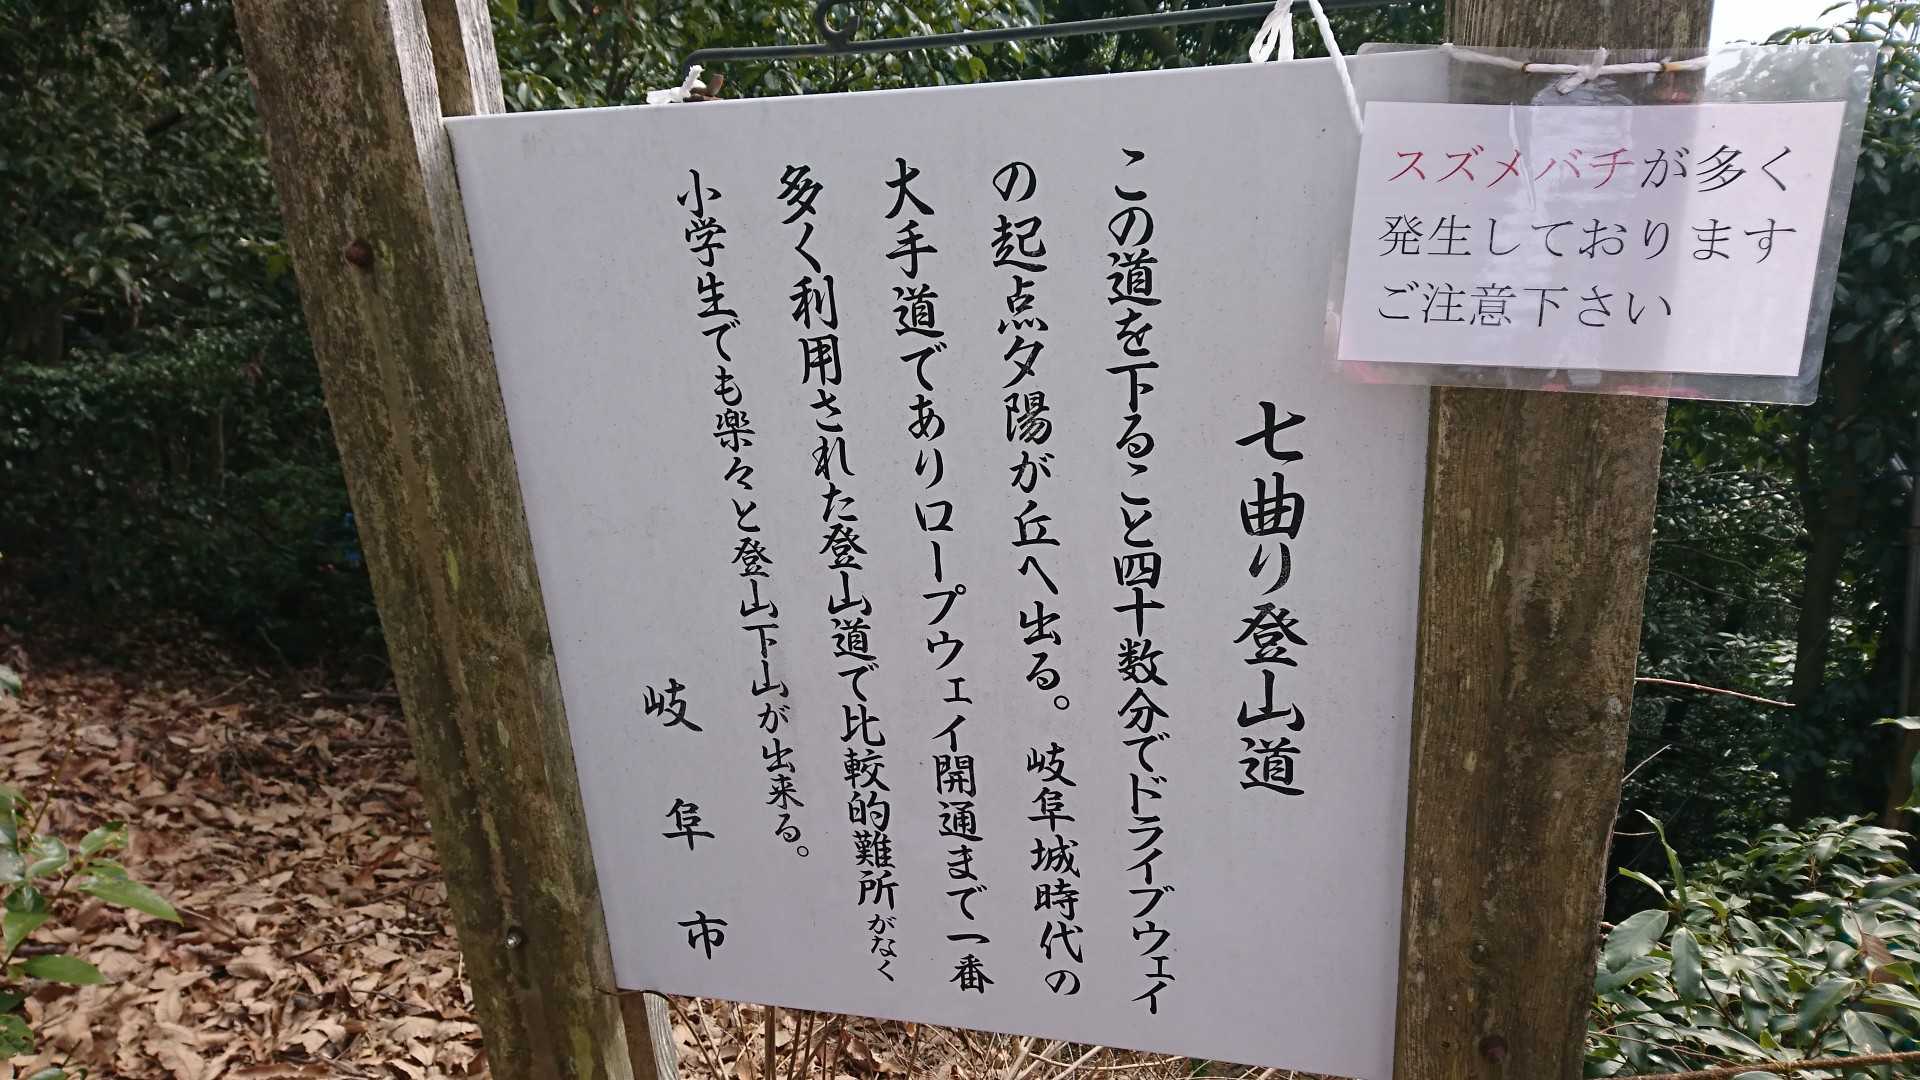 スズメバチが多く
発生しております
ご注意下さい
七曲り登山道
この道を下ること四十数分でドライブウェイ
の起点夕陽が丘へ出る。岐阜城時代の
大手道でありロープウェイ開通まで一番
多く利用された登山道で比較的難所がなく
小学生でも楽々と登山下山が出来る。
岐阜市